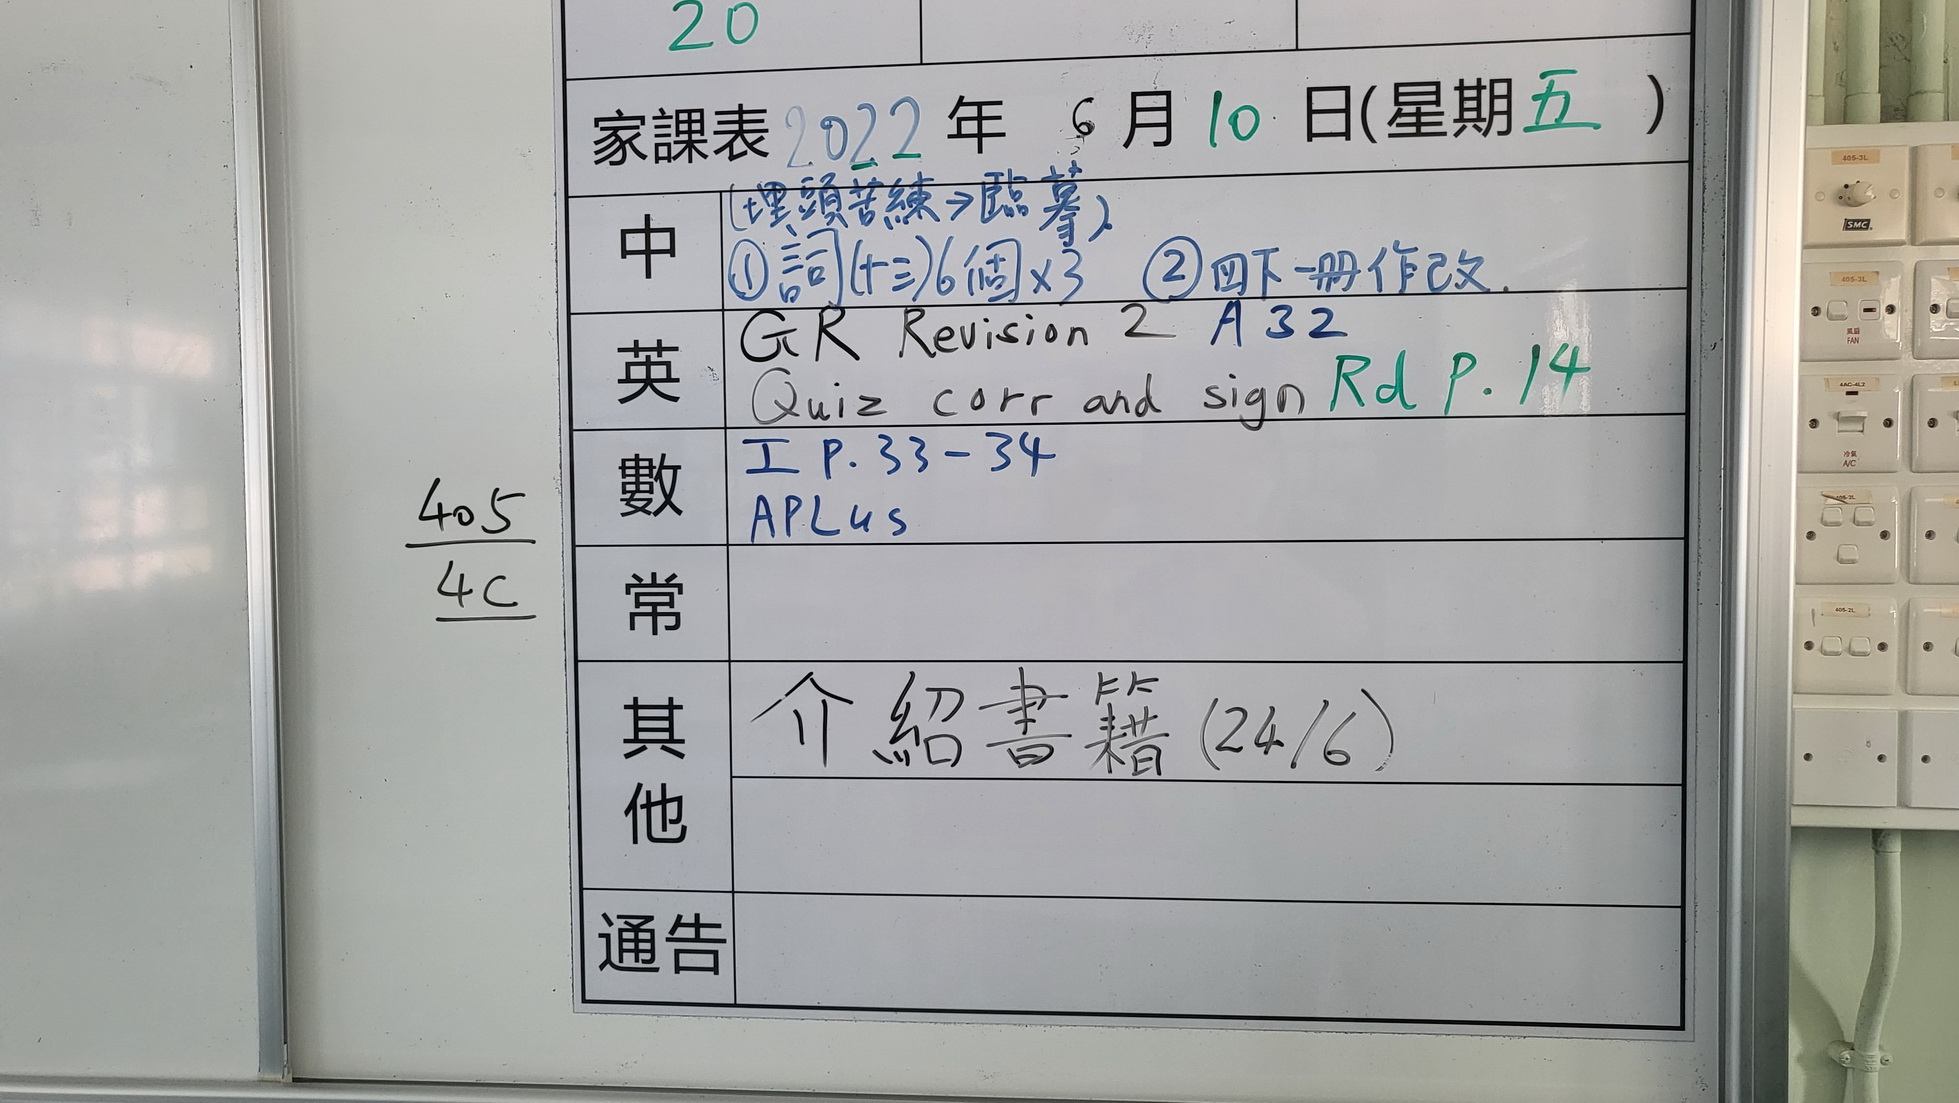 20
家課表 2022 年 6 月 10 日(星期五)
中
(埋頭苦練→臨摹)
①詞(十三)6個×3 ②四下一冊作改.
英
GR Revision 2 A32
Quiz corr and sign Rd P. 14
數
工 P. 33-34
APLus
405
4C
常
其他
介紹書籍 (24/6)
通告
405-3L
SMC
405-3L
風扇
FAN
4AC-4L2
冷氣
A/C
405-2L
405-2L